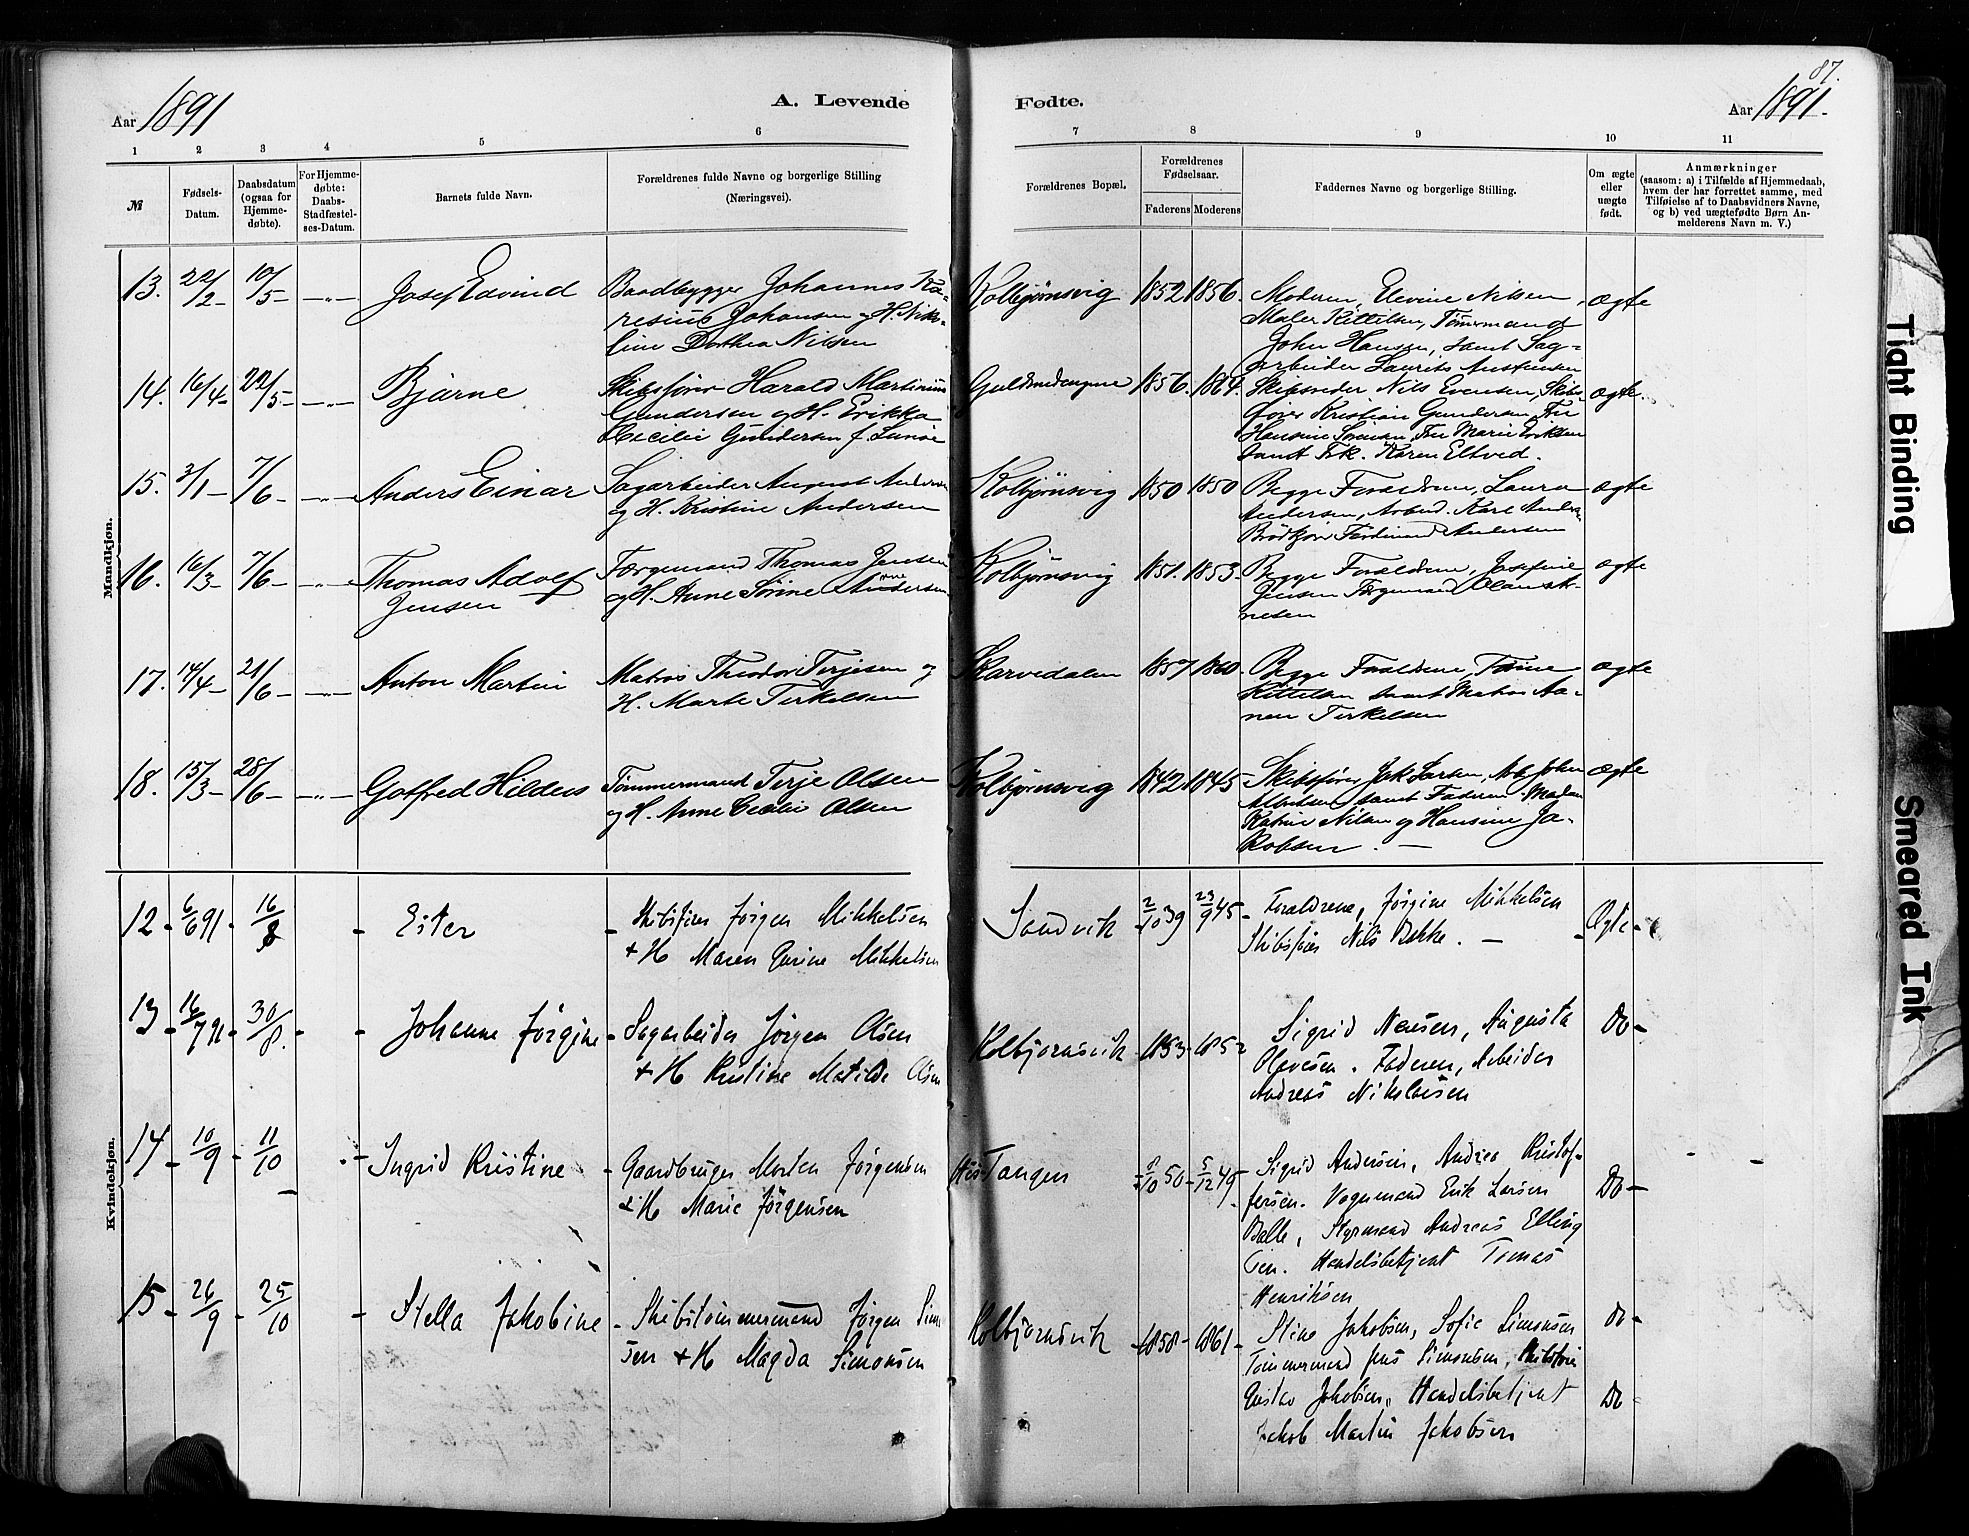 87.
Aar 1891
A. Levende
Fødte.
Aar 1891.
1 2 3 4 5 6 7 8 9 10 11
№
Fødsels-
Datum.
Daabsdatum
(ogsaa for
Hjemme-
døbte).
For Hjemme-
døbte:
Daabs-
Stadfæstel-
ses-Datum.
Barnets fulde Navn.
Forældrenes fulde Navne og borgerlige Stilling
(Næringsvei).
Forældrenes Bopæl.
Forældrenes
Fødselsaar.
Faderens Moderens
Faddernes Navne og borgerlige Stilling.
Om ægte
eller
uægte
født.
Anmærkninger
(saasom: a) i Tilfælde af Hjemmedaab,
hvem der har forrettet samme, med
Tilføielse af to Daabsvidners Navne,
og b) ved uægtefødte Børn An-
melderens Navn m. V.)
Mandkjøn.
13. 22/2 - 10/5 - - " - Josef Edvind
Baadbygger Johannes Ka-
resius Johansen og H. Niko-
line Dorthea Nilsen
Kolbjørnsvig 1852 1856.
Moderen, Elevine Nilsen
Maler Kittelsen, Tømermand
John Hansen, samt Sag-
arbeider Laurits
ægte
14. 16/4 - 22/5 - - " - Bjarne
Skibsfører Harald Martinius
Gundersen og H. Erikka
Cecilie Gundersen f.
1856. 1864.
Skibsreder Nils Evensen, Skibs-
fører Kristian Gundersen, Fru
Hansine Sørensen, Fru Marie Eriksen
samt Frk. Karen Eltved.
ægte
15. 3/1 - 7/6 - - " - Anders Einar
Sagarbeider August Andersen
og H. Kristine Andersen
Kolbjørnsvig 1850 1850
Begge Forældrene, Laura
Andersen, Arbeid. Karl
Ferdinand Andersen
ægte
16. 16/3 - 7/6 - - " - Thomas Adolf
Jensen
Færgemand Thomas Jensen
og H. Anne Sørine Andersen
Kolbjørnsvig 1851. 1853.
Begge Forældrene, Josefine
Jensen Færgemand
nesen
ægte
17. 14/4 - 21/6 - - " - Anton Martin
Matros Theodor Terjesen og
H. Marte Terkelsen
Skarvedalen 1857 1860.
Begge Forældrene,
Kittelsen samt Matros Aa-
nen Terkelsen
ægte
18. 15/3 - 28/6 - - " - Gotfred Hilders
Tømmermand Terje Olsen
og H. Anne Cecilie Olsen
Kolbjørnsvig 1842 1845
Skibsfører Jak Larsen, Arb John
Albertsen samt Faderen. Madam
Katrine Nilsen og Hansine Ja-
kobsen. -
ægte
Kvindekjøn.
12 - 6/6 91 - 16/8 - Ester
- Skibsfører Jørgen Mikkelsen
+ H Maren Gurine Mikkelsen
Sandvik 2/10 39 23/9 45
- Forældrene, Jørgine Mikkelsen
Skibsfører Nils Bekke. -
- Ægte -
13 - 16/7 91 - 30/8. - - Johanne Jørgine
- Sagarbeider Jørgen Olsen
+ H Kristine Matilde Olsen
Kolbjørnsvik - 1853 - 1852
Sigrid Nensen, Augusta
Olavesen. Faderen, Arbeider
Andreas Nikolaisen
Do -
14 - 10/9 - 11/10 - Ingrid Kristine
- Gaardbruger Morten Jørgensen
+ H Marie Jørgensen
His Tangen - 8/10 50 - 5/12 49 -
Sigrid Andersen, Andrea Kristof-
fersen. Vognmand Erik Larsen
Balle, Styrmand Andreas Elling
sen. Handelsbetjent Tomas
Henriksen
Do -
15 - 26/9 - 25/10 - Stella Jakobine
- Skibstømmermand Jørgen Simon
sen + H Magda Simonsen
Kolbjørnsvik - 1858 - 1861 -
Stine Jakobsen, Sofie Simonsen
Tømmermand Jens Simonsen, Skibsfører
Gustav Jakobsen, Handelsbetjent
Jakob Martin Jakobsen
Do -
Do -
Tight Binding
Smeared Ink